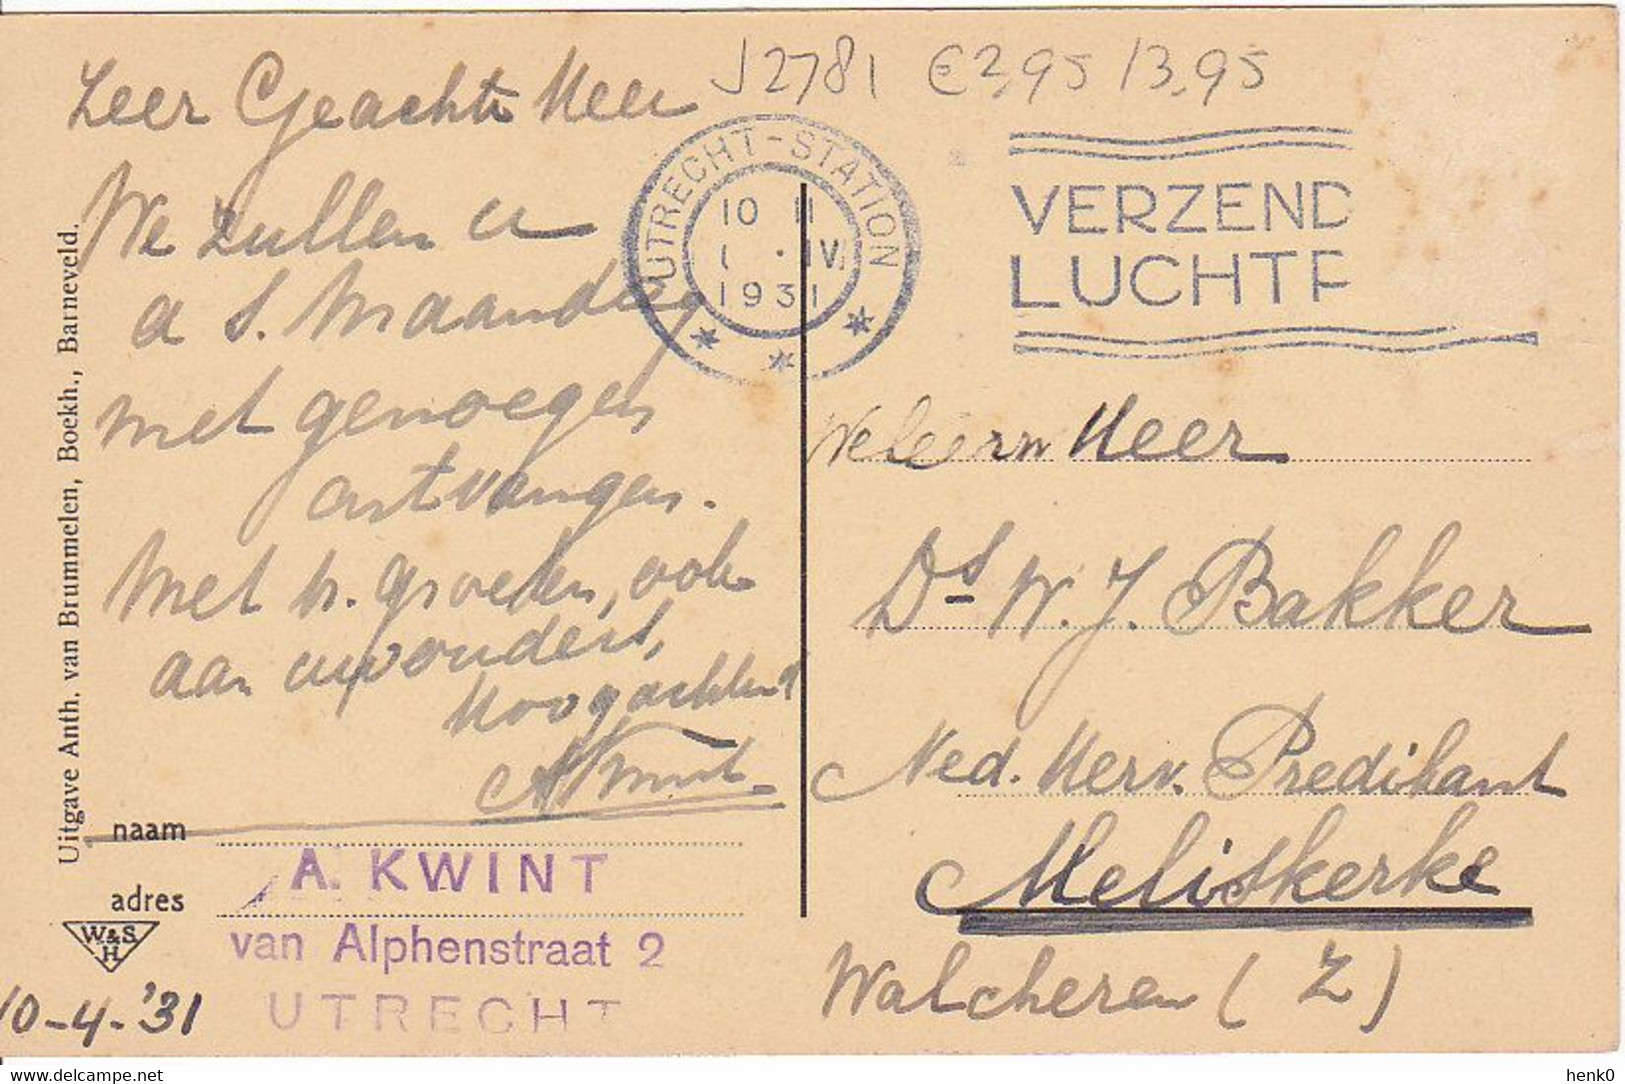 J2781 € 3,95 / 3,95
Zeer Geachte Heer
We zullen u
a s. Maandag
met genoegen
ontvangen.
Met h. groeten, ook
aan uw
Hoogachtend
A Kwint
naam
A. KWINT
adres
van Alphenstraat 2
UTRECHT
W&S
H
10-4-'31
Uitgave Anth. van Brummelen, Boekh., Barneveld.
UTRECHT-STATION
10 11
IV
1931
VERZEND
LUCHTP
Weleerw Heer
Ds W. J. Bakker
Ned. Herv. Predikant
Meliskerke
Walcheren (Z)
delcampe.net
henk0